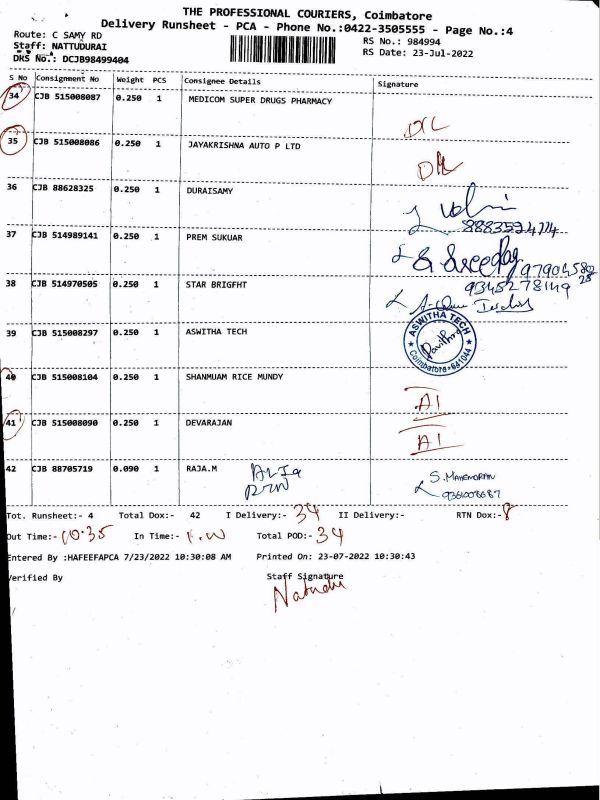 THE PROFESSIONAL COURIERS, Coimbatore
Delivery Runsheet - PCA - Phone No.:0422-3505555 - Page No.:4
Route: C SAMY RD
RS No.: 984994
Staff: NATTUDURAI
RS Date: 23-Jul-2022
DRS No.: DCJB98499404
S No Consignment No Weight PCS Consignee Details Signature
34 CJB 515008087 0.250 1 MEDICOM SUPER DRUGS PHARMACY
35 CJB 515008086 0.250 1 JAYAKRISHNA AUTO P LTD
36 CJB 88628325 0.250 1 DURAISAMY
37 CJB 514989141 0.250 1 PREM SUKUAR
38 CJB 514970505 0.250 1 STAR BRIGFHT
39 CJB 515008297 0.250 1 ASWITHA TECH
ASWITHA TECH
Coimbatore-641044
40 CJB 515008104 0.250 1 SHANMUAM RICE MUNDY
AI
41 CJB 515008090 0.250 1 DEVARAJAN
AI
42 CJB 88705719 0.090 1 RAJA.M
Tot. Runsheet:- 4 Total Dox:- 42 I Delivery:- 34 II Delivery:- RTN Dox:- 8
Out Time:- 10.35 In Time:- Total POD:- 34
Entered By :HAFEEFAPCA 7/23/2022 10:30:08 AM Printed On: 23-07-2022 10:30:43
Verified By Staff Signature